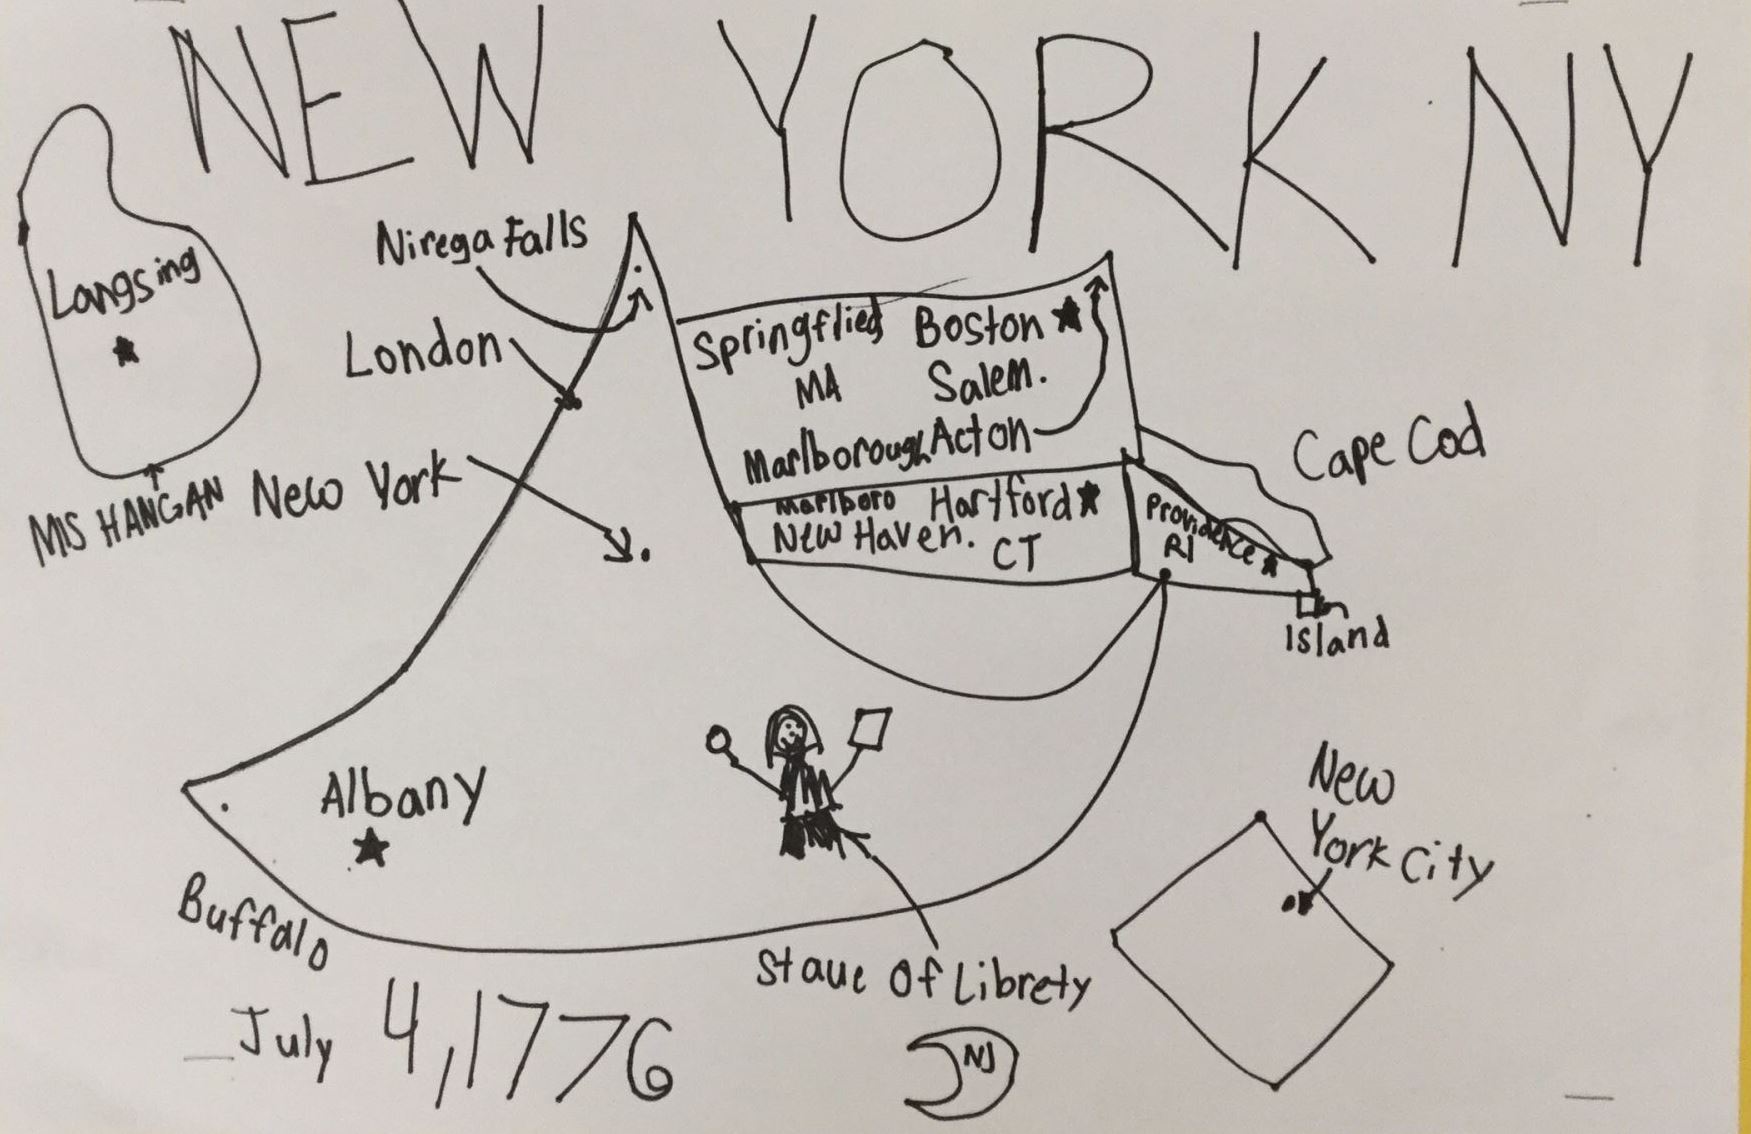 NEW YORK NY
Langsing
MISHANGAN
Nirega Falls
London
New York
Springflied
MA
Boston
Salem.
Marlborough
Acton
Marlboro
New Haven.
Hartford
CT
Providence
RI
Cape Cod
Island
Albany
Buffalo
Staue Of Librety
New
York City
July 4,1776
NJ